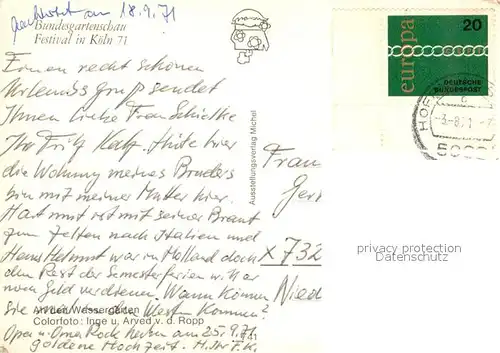 beantwortet am 18.9.71
Bundesgartenschau
Festival in Köln 71
Einen recht schönen
Urlaubsgruß sendet
Ihnen liebe Frau Schielke
Ihr Fritz Hüte hier
die Wohnung meines Bruders
bin mit meiner Mutter hier.
Hartmut ist mit seiner Braut
zum Zelten nach Italien und
Hans Helmut war in Holland doch
den Rest der Semesterferien w. er
Geld verdienen. Wann können
Sie wieder den Westen kommen?
Opa u. Oma Rock am 25.9.71
goldene Hochzeit. H. Ihr F. K.
An den Wassergärten
Colorfoto: Inge u. Arved v. d. Ropp
41
Ausstellungsverlag Michel
Frau
Ger
X 732
Nied
europa
20
DEUTSCHE
BUNDESPOST
HOF
-3.-8.71
privacy protection
Datenschutz